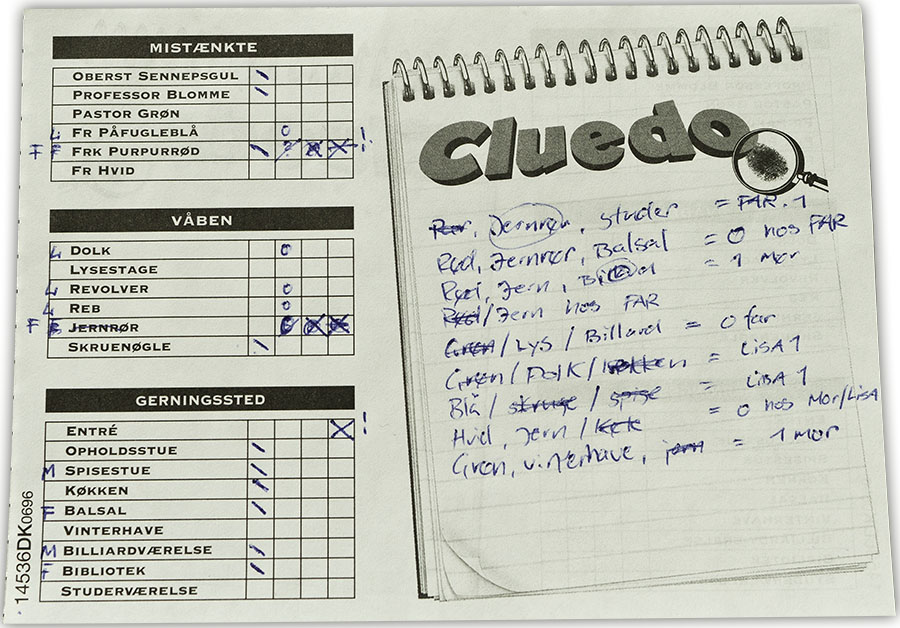 MISTÆNKTE
OBERST SENNEPSGUL
PROFESSOR BLOMME
PASTOR GRØN
L FR PÅFUGLEBLÅ 0
F F FRK PURPURRØD
FR HVID
VÅBEN
L DOLK 0
LYSESTAGE
L REVOLVER 0
L REB 0
F JERNRØR
SKRUENØGLE
GERNINGSSTED
ENTRÉ X !
OPHOLDSSTUE
M SPISESTUE
KØKKEN
F BALSAL
VINTERHAVE
M BILLIARDVÆRELSE
F BIBLIOTEK
STUDERVÆRELSE
14536DK0696
Cluedo
Jernrør, studer = FAR. 1
Rød, Jernrør, Balsal = 0 hos FAR
Rød, Jern, = 1 mor
Rød/Jern hos FAR
Grøn/Lys/Billard = 0 far
Grøn/Dolk/køkken = LISA 1
Blå/skrue/spise = LISA 1
Hvid, Jern/ = 0 hos Mor/LISA
Grøn, vinterhave, jern = 1 mor